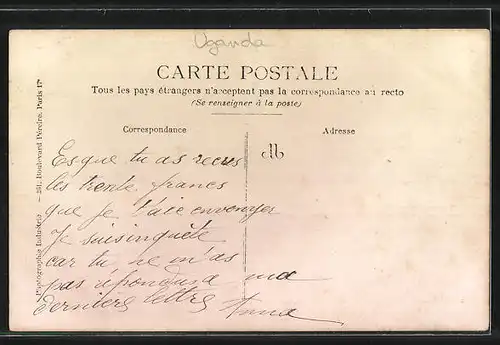 Oganda
CARTE POSTALE
Tous les pays étrangers n'acceptent pas la correspondance au recto
(Se renseigner à la poste)
Correspondance
Adresse
Photographie Industrie. — 231, Boulevard Péreire, Paris 17e
Esque tu as recus
les trente francs
que je t'aie envoyer
Je suis inquête
car tu ne m'as
pas repondus a ma
derniere lettre
Anna